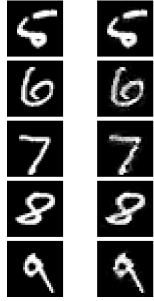 5 5
6 6
7 7
8 8
9 9